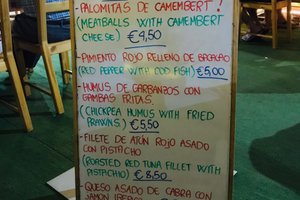 -PALOMITAS DE CAMEMBERT!
(MEATBALLS WITH CAMEMBERT
CHEESE) €4,50
-PIMIENTO ROJO RELLENO DE BACALAO
(RED PEPPER WITH COD FISH) €5,00
-HUMUS DE GARBANZOS CON
GAMBAS FRITAS.
(CHICKPEA HUMUS WITH FRIED
PRAWNS.) €5,50
-FILETE DE ATÚN ROJO ASADO
CON PISTACHO
(ROASTED RED TUNA FILLET WITH
PISTACHIO) €8,50
-QUESO ASADO DE CABRA CON
JAMÓN IBERICO